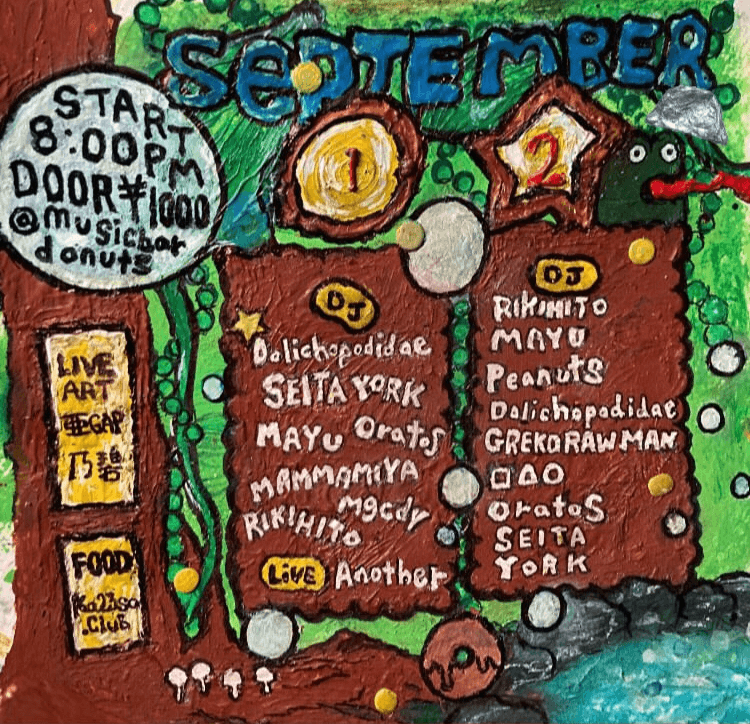 September
START
8:00PM
DOOR ¥1000
@musicbar
donuts
1
DJ
Dolichopodidae
SEITA YORK
MAYU Oratos
MAMMAMIYA
mgcdy
RIKIHITO
LIVE Another
2
DJ
RIKIHITO
MAYU
Peanuts
Dolichopodidae
GREKORAWMAN
□△○
Oratos
SEITA
YORK
LIVE
ART
GAP
FOOD
.CLUB